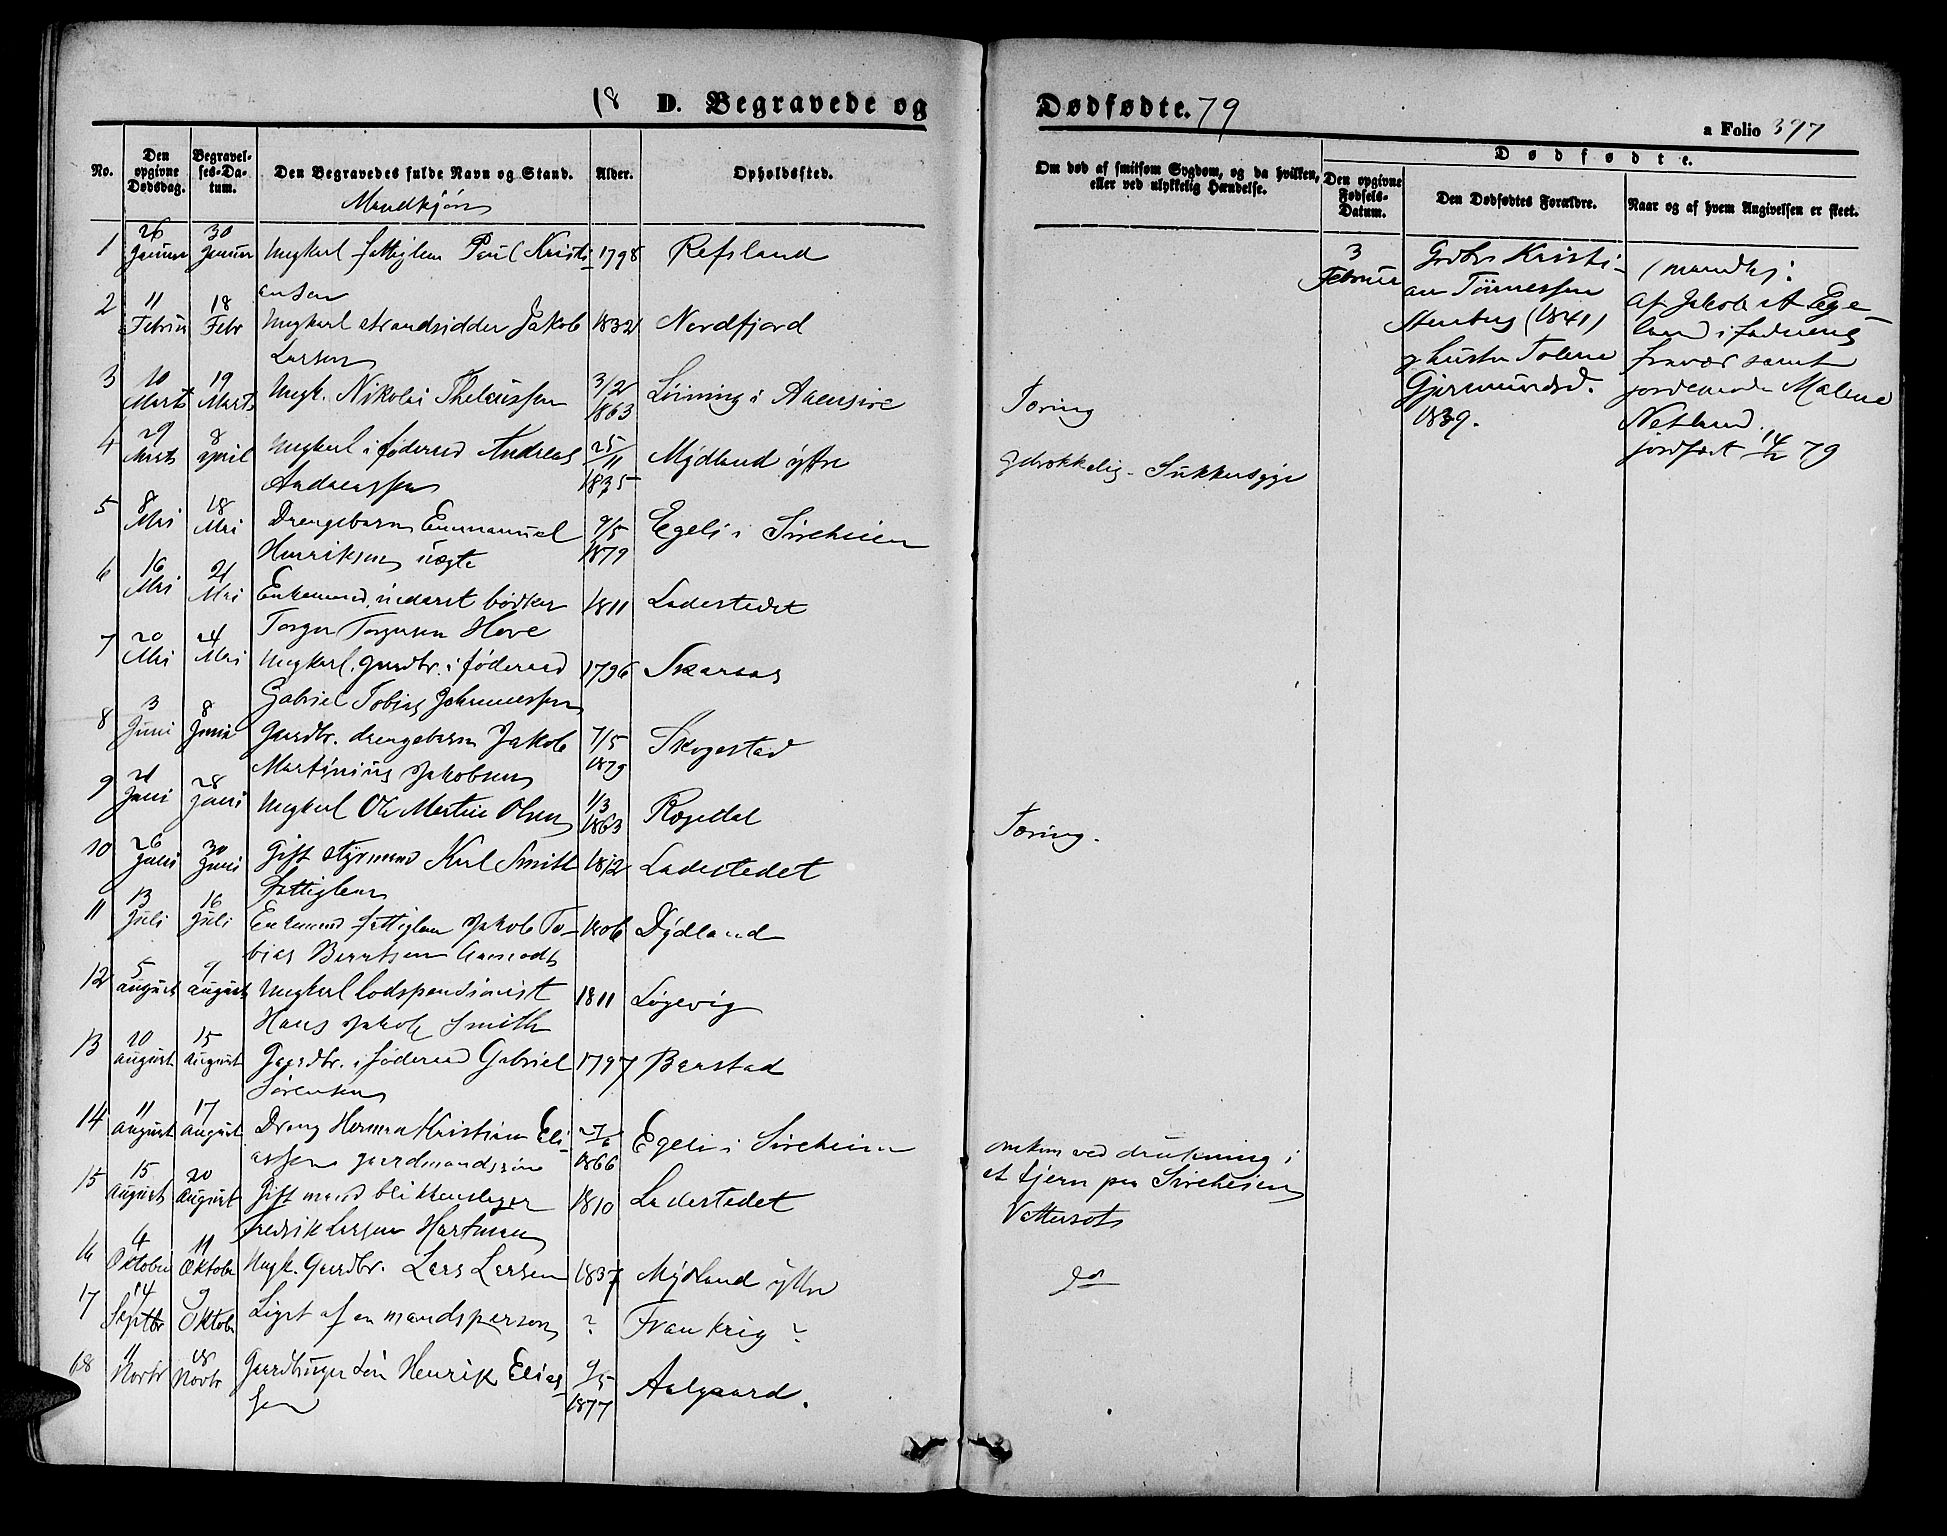 18 D. Begravede og Dødfødte. 79
a Folio 397
No.
Den opgivne Dødsdag.
Begravelses-Datum.
Den Begravedes fulde Navn og Stand.
Mandkjøn
Alder.
Opholdssted.
Om død af smitsom Sygdom, og da hvilken, eller ved ulykkelig Hændelse.
Dødfødte.
Den opgivne Fødsels-Datum.
Den Dødfødtes Forældre.
Naar og af hvem Angivelsen er skeet.
1 26 Januar 30 Januar Ungkarl fattiglem Paul Kristi- 1798 Refsland
ansen
2 11 Februar 18 Febr Ungkarl strandsidder Jakob 1832 Nordfjord
Larsen
3 10 Marts 19 Marts Ungk. Nikolai Theleussen 3/2 1863 Løining i Aaensire Tæring
4 29 Marts 8 April Ungkarl i føderaad Andreas 25/11 1835 Mydland ytre Sukkersyge
Andreassen
5 8 Mai 18 Mai Drengebarn Emmanuel 9/5 1879 Egeli i Sireheien
Henriksen uægte
6 16 Mai 21 Mai Enkemand, inderst bødker 1811 Ladestedet
Torger Torgersen Hove
7 20 Mai 24 Mai Ungkarl, gaardbr. i føderaad 1796 Skaraas
Gabriel Tobias Johannessen
8 3 Juni 8 Juni Gaardbr. drengebarn Jakob 7/5 1879 Skogestad
Martinius Jakobsen
9 21 Juni 28 Juni Ungkarl Ole Martin Olsen 1/3 1863 Rægedal Tæring.
10 26 Juni 30 Juni Gift styrmand Karl Smith 1812 Ladestedet
Fattiglem
11 13 Juli 16 Juli Enkemand fattiglem Jakob To- 1806 Dydland
bias Berntsen Aamodt
12 5 August 9 August Ungkarl lodspensionist 1811 Løgevig
Hans Jakob Smith
13 10 August 15 August Gaardbr. i føderaad Gabriel 1797 Barstad
Sørensen
14 11 August 17 August Dreng Herman Kristian Eli- 27/6 1866 Egeli i Sireheien omkom ved drukning i
assen gaardmandssøn et tjern paa Sireheien
15 15 August 20 August Gift mand blikkenslager 1810 Ladestedet Vattersot
Fredrik Larsen Hartman
16 4 Oktober 11 Oktobr Ungk. Gaardbr. Lars Larsen 1837 Mydland ytre do
17 14 Septbr 9 Oktobr Liget af en mandsperson ? Frankrig ?
18 11 Novbr 18 Novbr Gaardbruger søn Henrik Elias- 9/5 1877 Aalgaard.
sen
3 Februar
Grdbr Kristi-
an Tønnessen
Stenberg (1841)
g hustru Tolene
Gjermundsd.
1839.
(mandkj:
af Jakob A Ege-
land i faderens
fravær samt
jordemoder Malene
Netland.
jordfæst 14/2 79